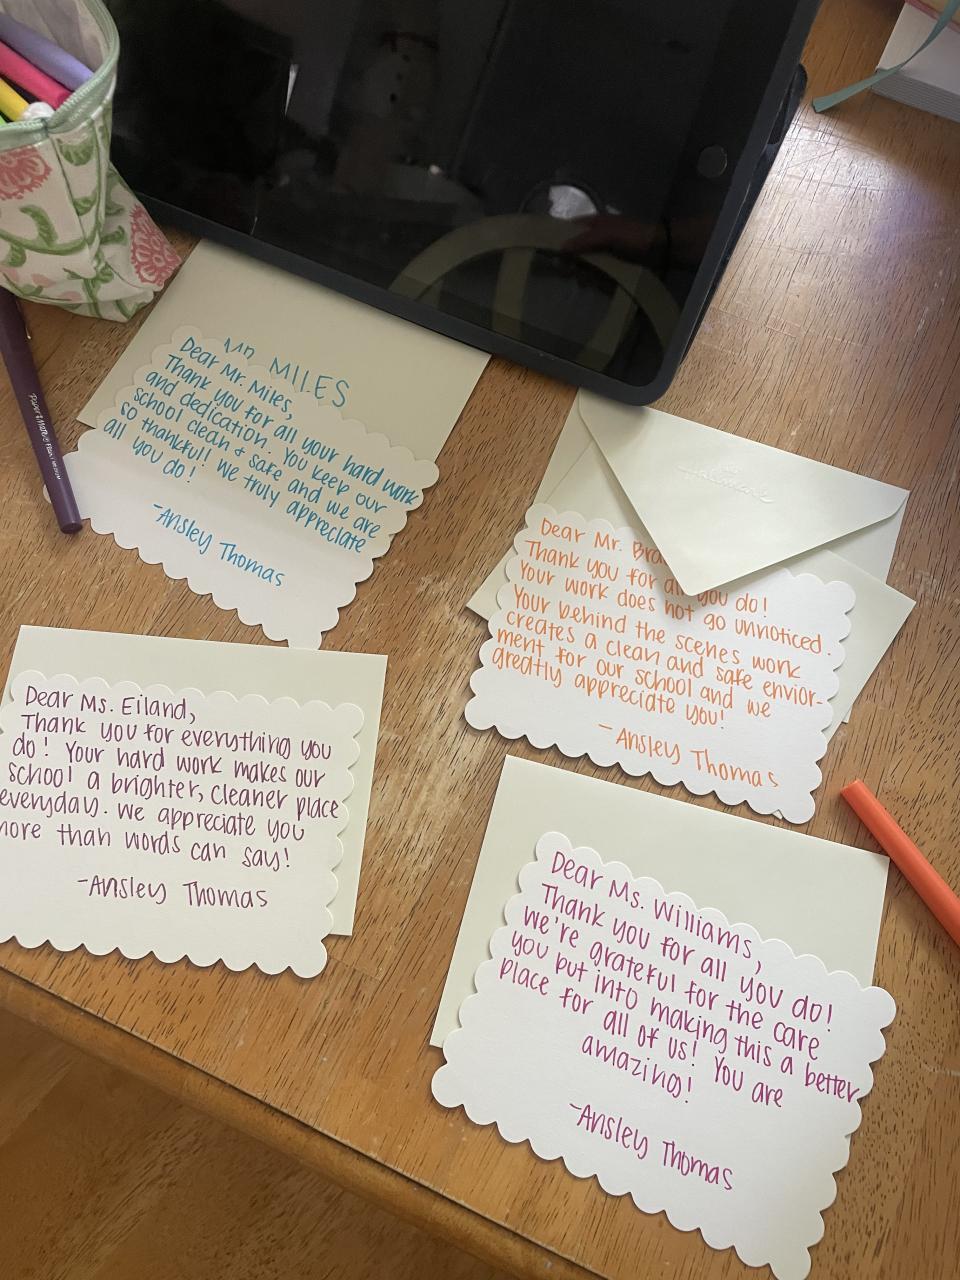 Mr. MILES
Dear Mr. Miles,
Thank you for all your hard work
and dedication. You keep our
school clean & safe and we are
so thankful! We truly appreciate
all you do!
-Ansley Thomas
Hallmark
Dear Mr.
Thank you for all you do!
Your work does not go unnoticed.
Your behind the scenes work
creates a clean and safe envior-
ment for our school and we
greatly appreciate you!
-Ansley Thomas
Dear Ms. Eiland,
Thank you for everything you
do! Your hard work makes our
school a brighter, cleaner place
everyday. We appreciate you
more than words can say!
-Ansley Thomas
Dear Ms. Williams,
Thank you for all you do!
We're grateful for the care
you put into making this a better
place for all of us! You are
amazing!
-Ansley Thomas